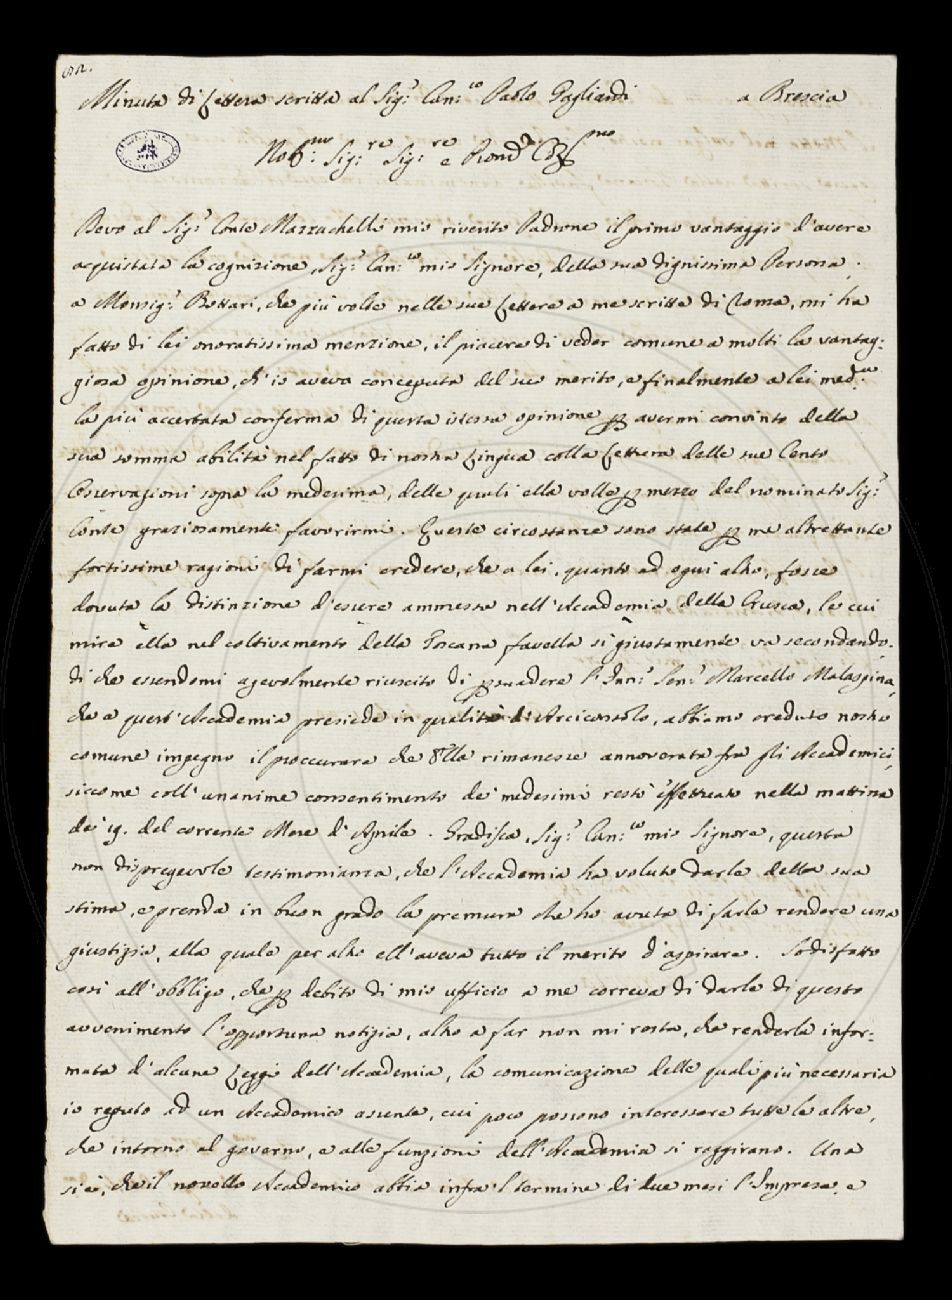 Minuta di Lettera scritta al Sig.r Can.co Paolo Gagliardi a Brescia
Nob.mo Sig.re Sig.re e Pron
Devo al Sig.r Conte Mazzuchelli mio riverito Padrone il primo vantaggio d'avere
acquistata la cognizione, Sig.r Can.co mio Signore, della sua dignissima Persona;
a Monsig.r Bottari, che più volte nelle sue Lettere a me scritte di Roma, mi ha
fatto di lei onoratissima menzione, il piacere di veder comune a molti la vantag-
giosa opinione, ch'io aveva conceputa del suo merito, e finalmente a lei med.ma
la più accertata conferma di questa istessa opinione per avermi convinto della
sua somma abilità nel fatto di nostra Lingua colla Lettura delle sue Cento
Osservazioni sopra la medesima, delle quali ella volle per mezzo del nominato Sig.r
Conte graziosamente favorirmi. Queste circostanze sono state per me altrettante
fortissime ragioni di farmi credere, che a lei, quanto ad ogni altro, fosse
dovuta la distinzione d'essere ammessa nell'Accademia della Crusca, le cui
mire ella nel coltivamento della Toscana favella sì giustamente va secondando.
Di che essendomi agevolmente riuscito di persuadere l'Ill.mo Sen.r Marcello Malaspina,
che a quest'Accademia presiede in qualità di Arciconsolo, abbiamo creduto nostro
comune impegno il proccurare che Ella rimanesse annoverata fra gli Accademici,
siccome coll'unanime consentimento de' medesimi restò effettuato nella mattina
de' 19. del corrente Mese d'Aprile. Gradisca, Sig.r Can.co mio Signore, questa
non dispregevole testimonianza, che l'Accademia ha voluto darle della sua
stima, e prenda in buon grado la premura che ho avuta di farle rendere una
giustizia, alla quale per altro ell'aveva tutto il merito d'aspirare. Sodisfatto
così all'obbligo, che per debito di mio uffizio a me correva di darle di questo
avvenimento l'opportuna notizia, altro a far non mi resta, che renderla infor-
mata d'alcune Leggi dell'Accademia, la comunicazione delle quali più necessaria
io reputo ad un Accademico assente, cui poco possono interessare tutte le altre,
che intorno al governo, e alle funzioni dell'Accademia si raggirano. Una
si è, che il novello Accademico abbia infra 'l termine di due mesi l'Impresa, e